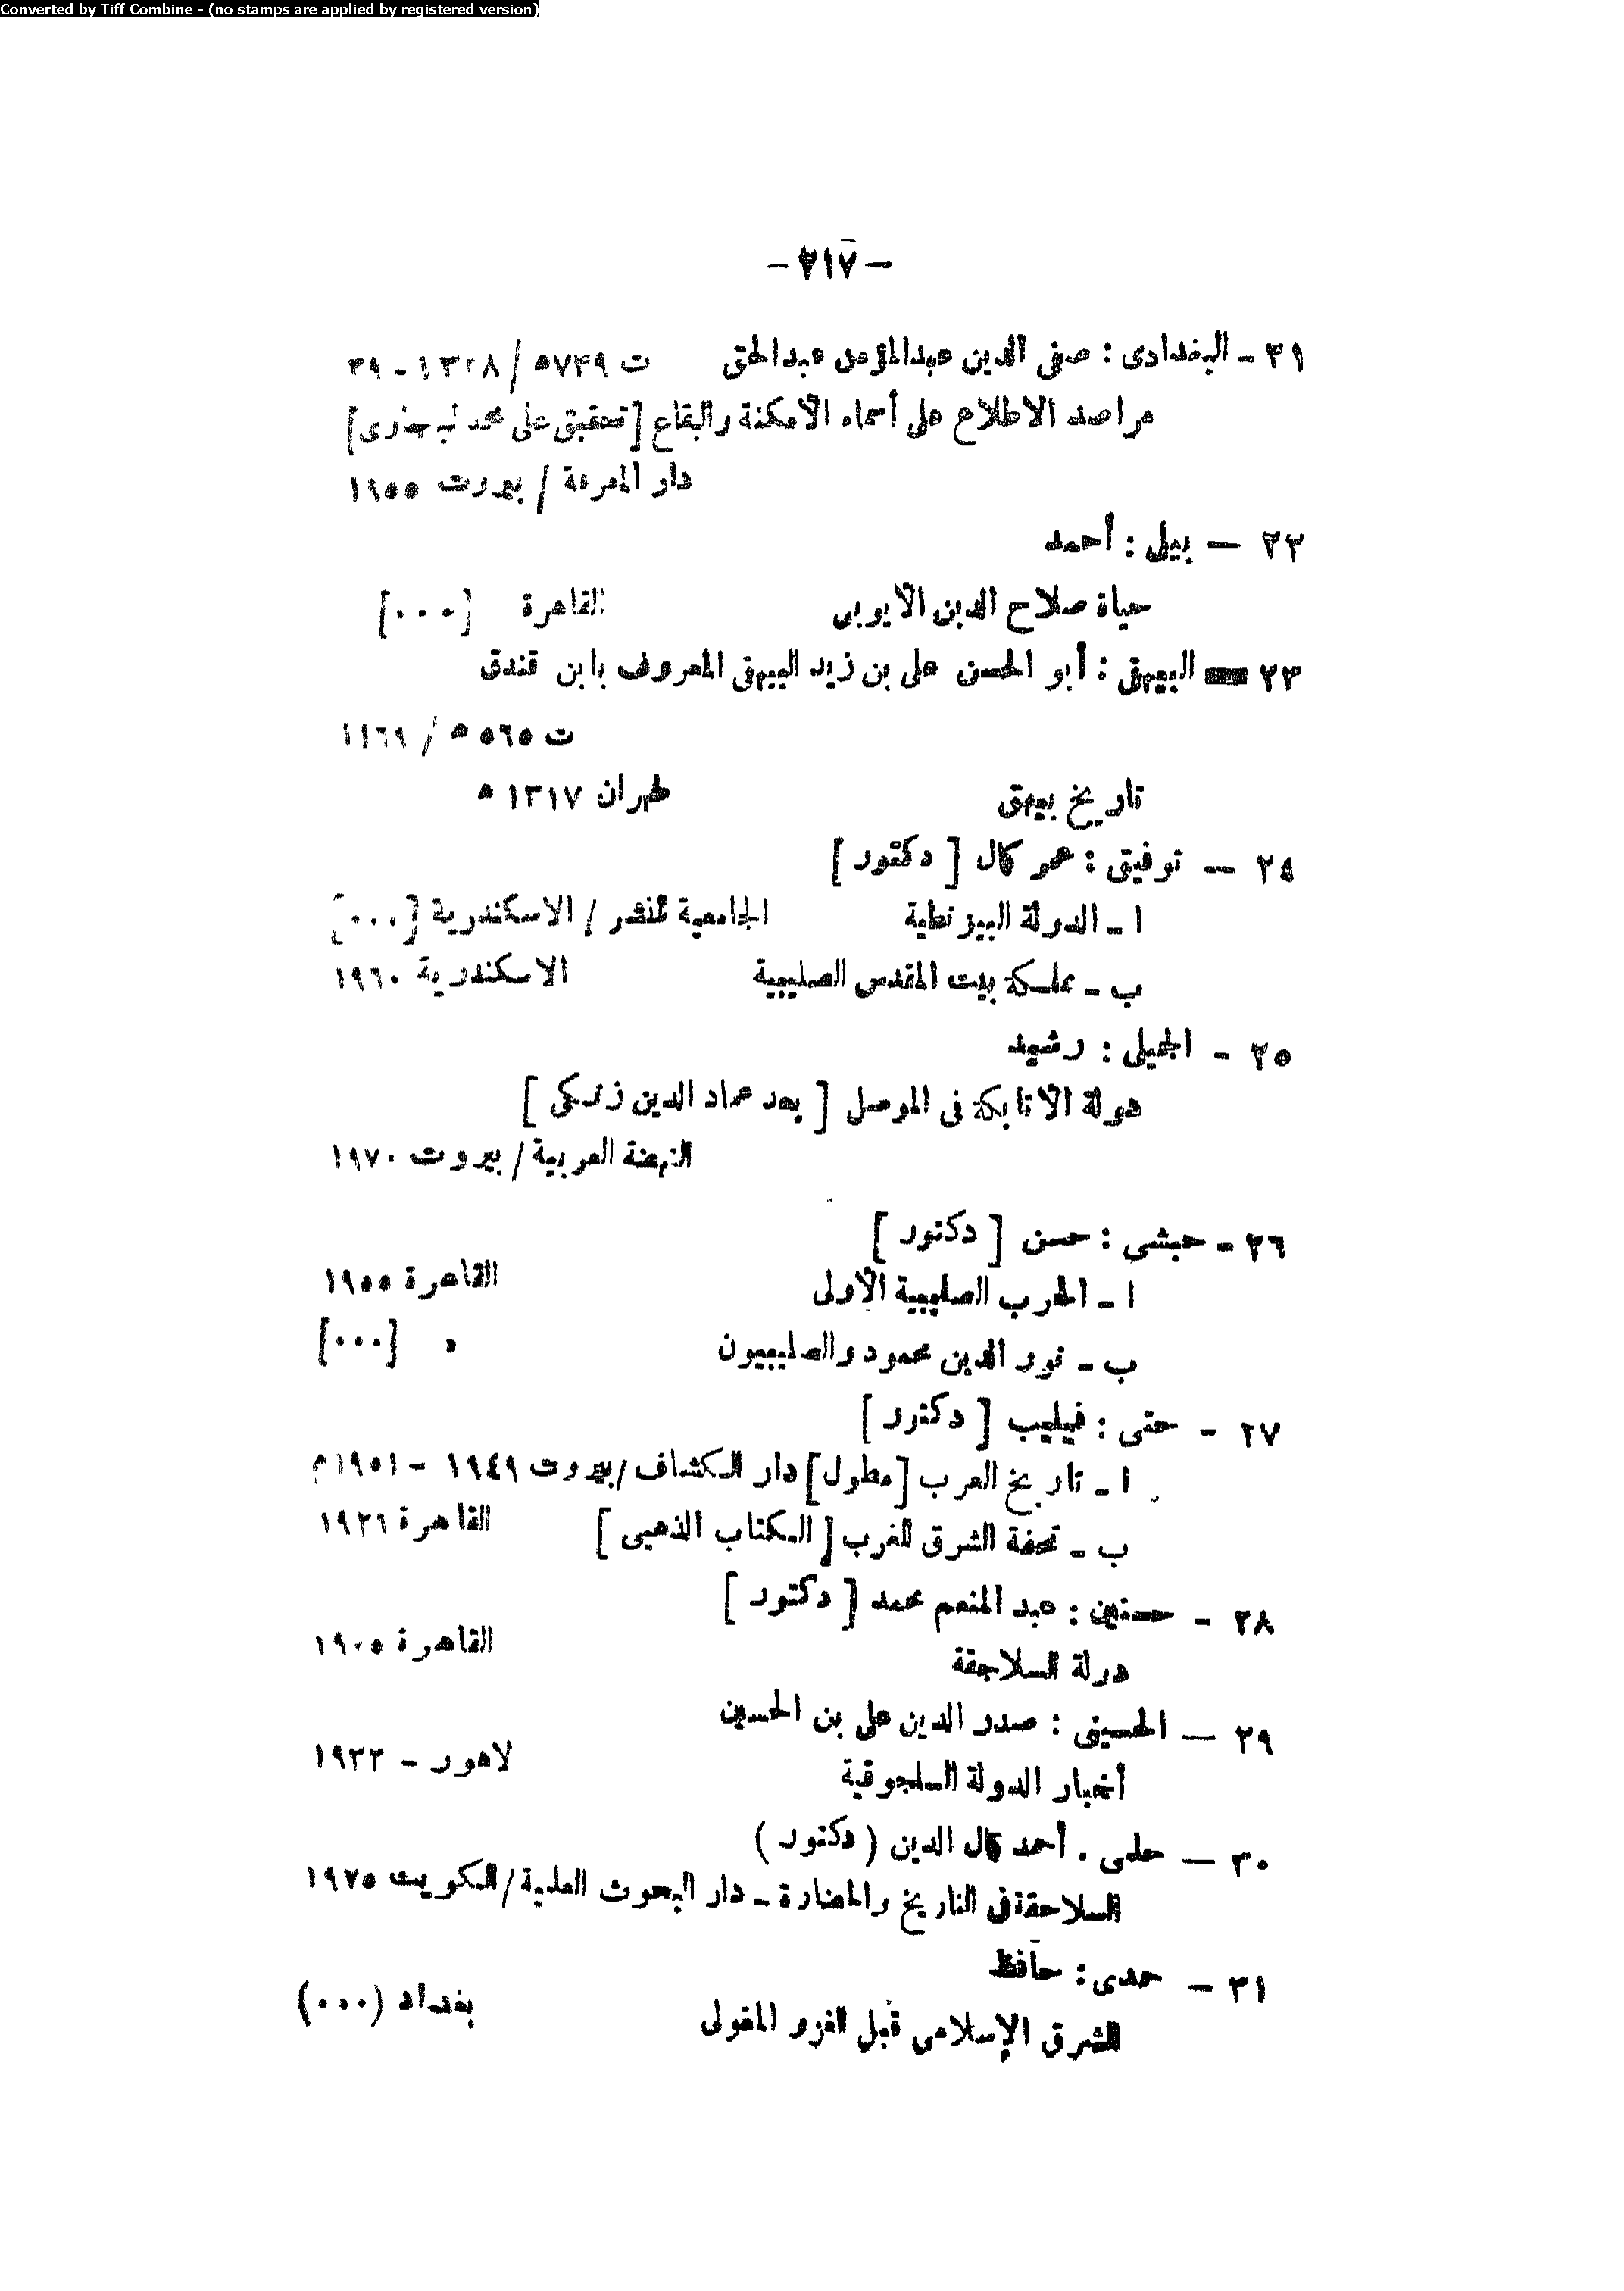 Converted by Tiff Combine - (no stamps are applied by registered version)
- ٢١٧ -
٢١ - البغدادى : صفى الدين عبدالمؤمن عبدالحق ت ٧٣٩ه / ١٣٣٨ - ٣٩
مراصد الاطلاع على أسماء الأمكنة والبقاع [تحقيق على محمد]
دار المعرفة / بيروت ١٩٥٥
٢٢ — بيلى : أحمد
حياة صلاح الدين الأيوبى القاهرة [٠٠٠]
٢٣ — البيهقى : أبو الحسن على بن زيد البيهقى المعروف بابن قندق
ت ٥٦٥ ه / ١١٦٩
تاريخ بيهق طهران ١٣١٧ ه
٢٤ — توفيق : عمر كمال [ دكتور ]
ا - الدولة البيزنطية الجامعية للنشر / الاسكندرية [٠٠٠]
ب - مملكة بيت المقدس الصليبية الاسكندرية ١٩٦٠
٢٥ - الجميلى : رشيد
دولة الأتابكة فى الموصل [ بعد عماد الدين زنكى ]
النهضة العربية / بيروت ١٩٧٠
٢٦ - حبشى : حسن [ دكتور ]
ا - الحرب الصليبية الأولى القاهرة ١٩٥٥
ب - نور الدين محمود والصليبيون د [٠٠٠]
٢٧ - حتى : فيليب [ دكتور ]
ا - تاريخ العرب [مطول] دار الكشاف / بيروت ١٩٤٩ - ١٩٥١ م
ب - تحفة الشرق للغرب [ الكتاب الذهبى ] القاهرة ١٩٢٦
٢٨ - حسنين : عبد المنعم محمد [ دكتور ]
دولة السلاجقة القاهرة ١٩٠٥
٢٩ — الحسينى : صدر الدين على بن الحسين
أخبار الدولة السلجوقية لاهور - ١٩٣٣
٣٠ — حلمى . أحمد كمال الدين ( دكتور )
السلاجقة فى التاريخ والحضارة - دار البحوث العلمية / الكويت ١٩٧٥
٣١ - حمدى : حافظ
الشرق الإسلامى قبل الغزو المغولى بغداد (٠٠٠)